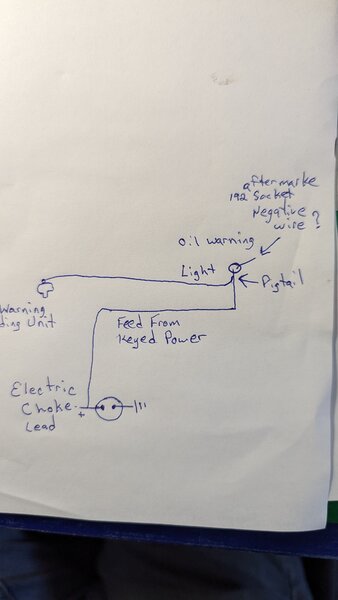 aftermarke
192 Socket
Negative
wire?
Oil warning
Light
Pigtail
Warning
ding Unit
Feed From
Keyed Power
Electric
Choke
Lead
+